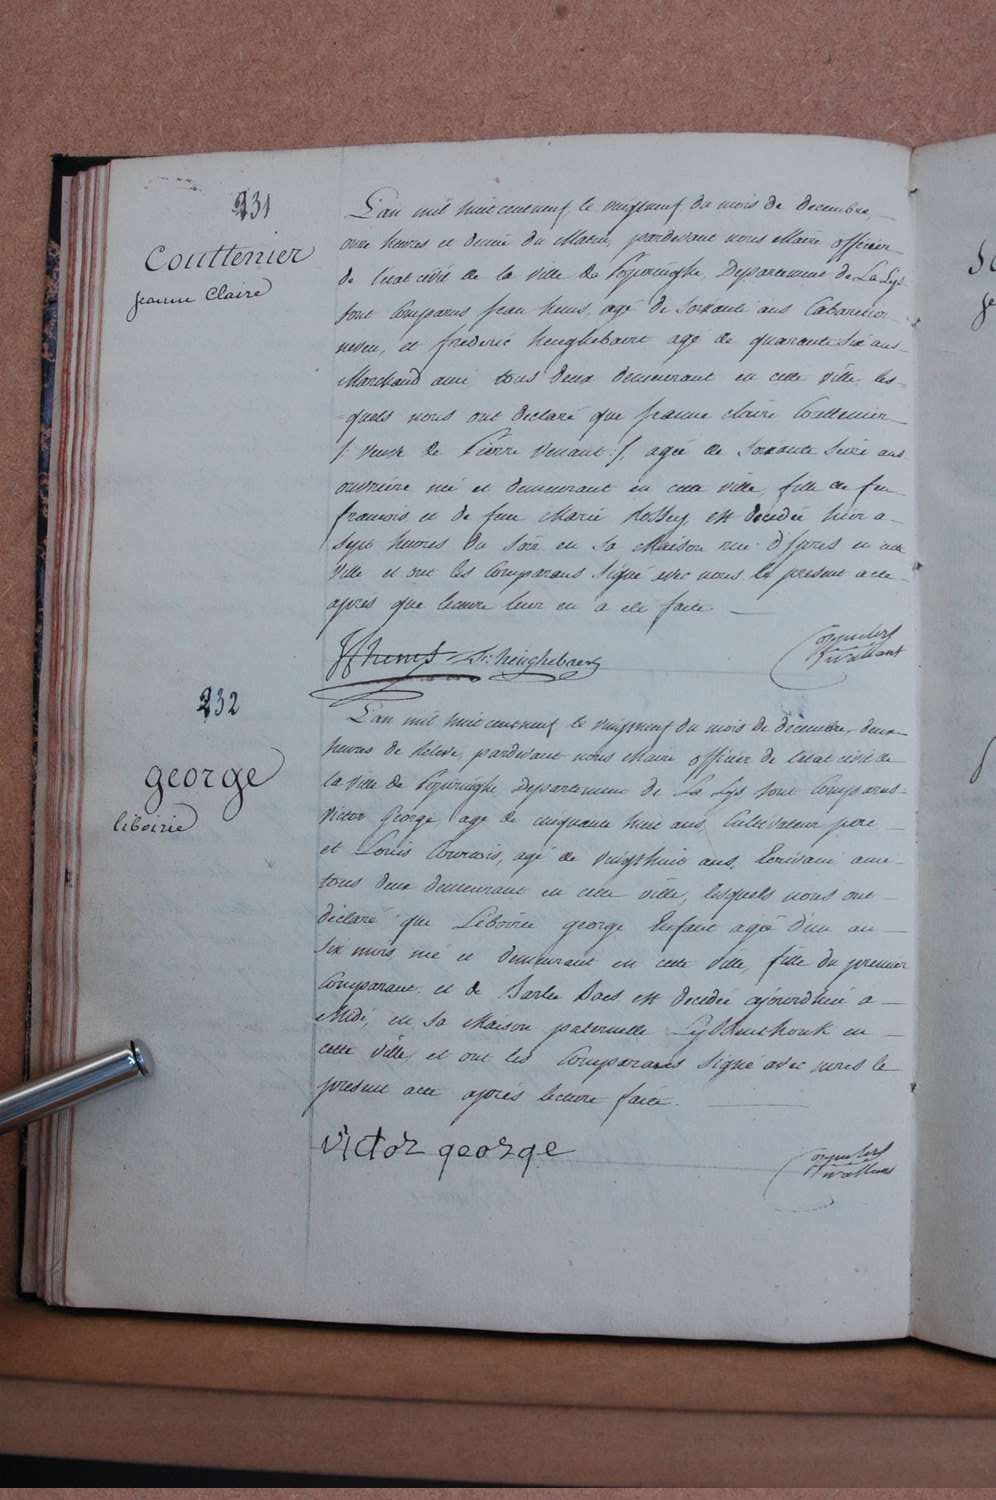 231
Couttenier
jeanne Claire
L'an mil huit cent neuf, le vingtneuf du mois de decembre,
onze heures et demie du Matin, pardevant nous Maire officier
de l'etat civil de la ville de Poperinghe, Departement de La Lys
sont Comparus jean heus, agé de soixante ans Cabaretier
neveu, et frederic heughebaert agé de quarante six ans
Marchand ami tous deux demeurant en cette ville, les=
=quels nous ont declaré que jeanne claire Couttenier
/: veuve de Pierre venant :/, agée de soixante seize ans
ouvriere né et demeurant en cette ville, fille de feu
francois et de feue Marie, est decedée hier a
sept heures du soir en sa Maison rue d'ypres en cette
ville et ont les Comparans signé avec nous le present acte
apres que lecture leur en a été faite.
heughebaert
232
george
liboirie
L'an mil huit cent neuf le vingtneuf du mois de décembre, deux
heures de Relevé, pardevant nous Maire officier de l'etat civil de
la ville de Poperinghe Departement de La Lys, sont Comparus
victor George, agé de cinquante huit ans, Cultivateur pere
et Louis Courtois, agé de vingthuit ans, Ecrivain ami
tous deux demeurant en cette ville, lesquels nous ont
déclaré que Liboirie george Enfant agée d'un an
six mois né et demeurant en cette ville, fille du premier
Comparant, et de Barbe Baes est decedée ajourd'hui a
Midi, en sa Maison paternelle en
cette ville, et ont les Comparans signé avec nous le
present acte après lecture faite.
victor george